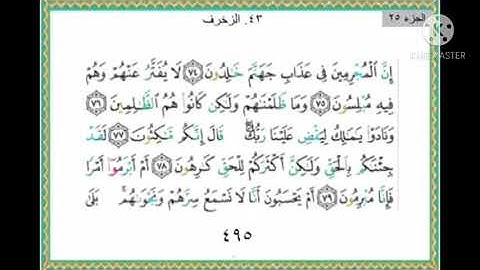 الجزء ٢٥
٤٣. الزخرف
KINEMASTER
إِنَّ الْمُجْرِمِينَ فِي عَذَابِ جَهَنَّمَ خَٰلِدُونَ ﴿٧٤﴾ لَا يُفَتَّرُ عَنْهُمْ وَهُمْ
فِيهِ مُبْلِسُونَ ﴿٧٥﴾ وَمَا ظَلَمْنَٰهُمْ وَلَٰكِن كَانُوا هُمُ الظَّٰلِمِينَ ﴿٧٦﴾
وَنَادَوْا يَٰمَٰلِكُ لِيَقْضِ عَلَيْنَا رَبُّكَ ۖ قَالَ إِنَّكُم مَّٰكِثُونَ ﴿٧٧﴾ لَقَدْ
جِئْنَٰكُم بِالْحَقِّ وَلَٰكِنَّ أَكْثَرَكُمْ لِلْحَقِّ كَٰرِهُونَ ﴿٧٨﴾ أَمْ أَبْرَمُوا أَمْرًا
فَإِنَّا مُبْرِمُونَ ﴿٧٩﴾ أَمْ يَحْسَبُونَ أَنَّا لَا نَسْمَعُ سِرَّهُمْ وَنَجْوَىٰهُم ۚ بَلَىٰ
٤٩٥